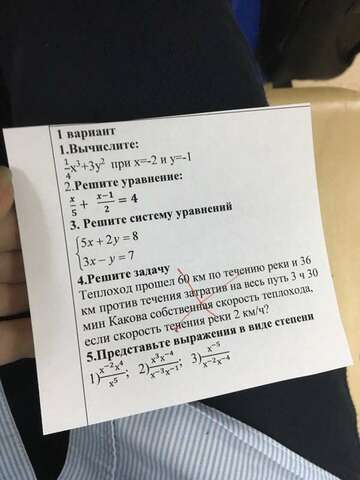 1 вариант
1.Вычислите:
1/4x³+3y² при x=-2 и y=-1
2.Решите уравнение:
x/5 + x−1/2 = 4
3. Решите систему уравнений
{5x + 2y = 8
3x − y = 7
4.Решите задачу
Теплоход прошел 60 км по течению реки и 36
км против течения затратив на весь путь 3 ч 30
мин Какова собственная скорость теплохода,
если скорость течения реки 2 км/ч?
5.Представьте выражения в виде степени
1) x⁻²x⁴/x⁵; 2) x³x⁻⁴/x⁻³x⁻¹; 3) x⁻⁵/x⁻²x⁻⁴